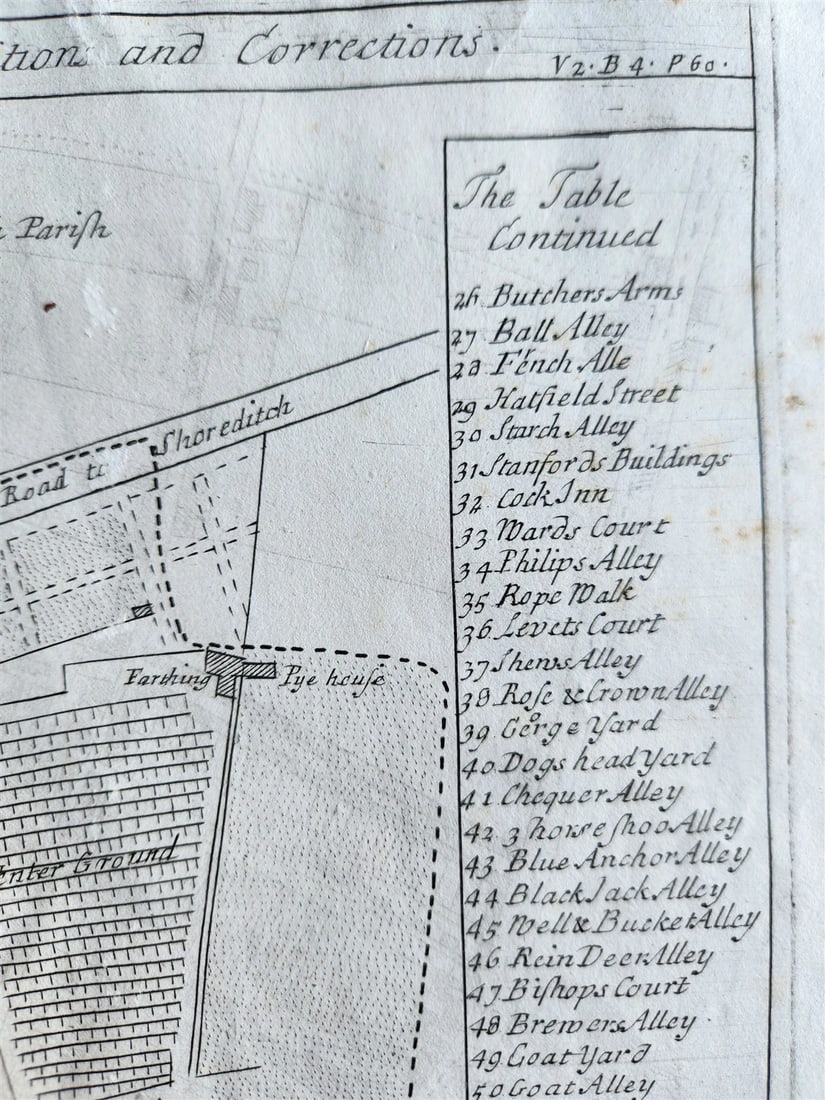 tions and Corrections.
V2. B 4. P 60.
Pariſh
The Table
Continued
26 Butchers Arms
27 Ball Alley
28 Fénch Alle
29 Hatfield Street
30 Starch Alley
31 Stanfords Buildings
32 Cock Inn
33 Wards Court
34 Philips Alley
35 Rope Walk
36 Levets Court
37 Shews Alley
38 Roſe & Crown Alley
39 Geo̊rge Yard
40 Dogs head Yard
41 Chequer Alley
42 3 horse ſhoo Alley
43 Blue Anchor Alley
44 Black Jack Alley
45 Well & Bucket Alley
46 Rein Deer Alley
47 Biſhops Court
48 Brewers Alley
49 Goat Yard
50 Goat Alley
Road to Shoreditch
Farthing Pye houſe
enter Ground